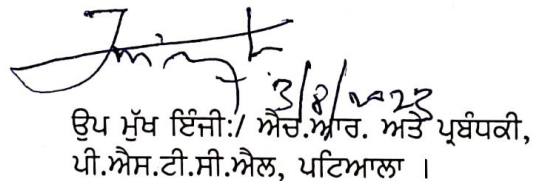 3/8/2023
ਉਪ ਮੁੱਖ ਇੰਜੀ:/ ਐਚ.ਆਰ. ਅਤੇ ਪ੍ਰਬੰਧਕੀ,
ਪੀ.ਐਸ.ਟੀ.ਸੀ.ਐਲ, ਪਟਿਆਲਾ ।